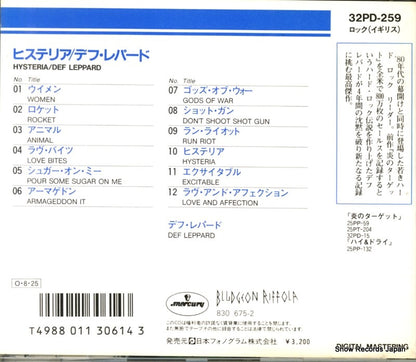 32PD-259
ロック(イギリス)
ヒステリア/デフ・レパード
HYSTERIA/DEF LEPPARD
No. Title
01 ウイメン
WOMEN
02 ロケット
ROCKET
03 アニマル
ANIMAL
04 ラヴ・バイツ
LOVE BITES
05 シュガー・オン・ミー
POUR SOME SUGAR ON ME
06 アーマゲドン
ARMAGEDDON IT
No. Title
07 ゴッズ・オブ・ウォー
GODS OF WAR
08 ショット・ガン
DON'T SHOOT SHOT GUN
09 ラン・ライオット
RUN RIOT
10 ヒステリア
HYSTERIA
11 エクサイタブル
EXCITABLE
12 ラヴ・アンド・アフェクション
LOVE AND AFFECTION
デフ・レパード
DEF LEPPARD
'80年代の幕開けと同時に登場した若きハー
ド・ロック・リーダー。前作「炎のターゲッ
ト」を全米で800万枚のセールスを記録すると
いうハード・ロック伝説を作り上げたデフ・
レパードが4年間の沈黙を破り新たなる記録
に挑む最高傑作。
「炎のターゲット」
25PP-59
25PT-204
32PD-15
「ハイ&ドライ」
25PP-132
O-8-25
T4988 011 30614 3
mercury
BLUDGEON RIFFOLA
830 675-2
このCDは権利者の許諾なく賃貸業に使用することを禁じます。
また無断でテープその他に録音することは法律で禁じられています。
発売元 日本フォノグラム株式会社 ¥3,200
DIGITAL MASTERING
Show Records Japan